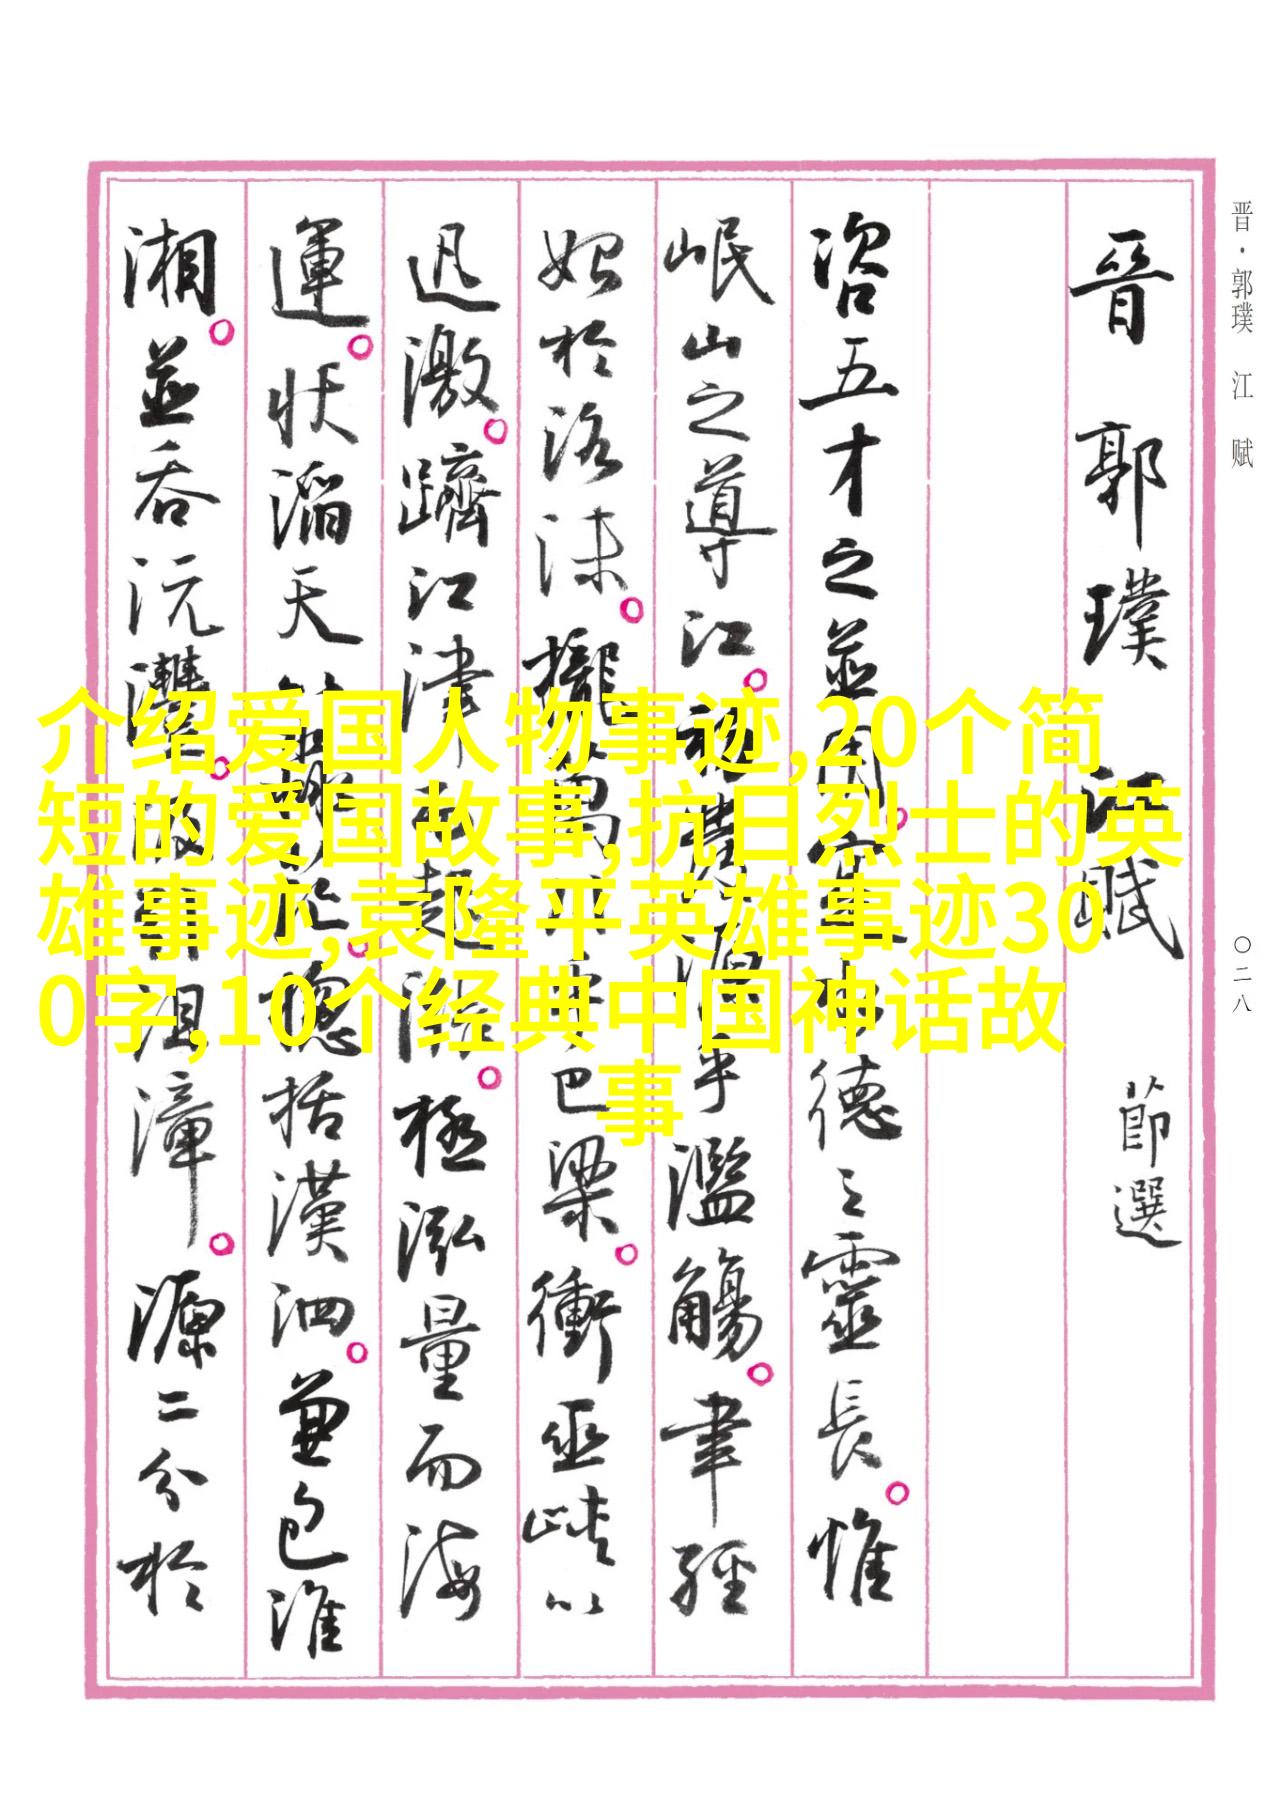 晋·郭璞 江 赋
〇二八
晉郭璞江賦 節選
咨五才之並用。寔水德之靈長。惟
岷山之導江。初發源乎濫觴。聿經
始於洛沬。攏萬川乎巴梁。衝巫峽以
迅激。躋江津而起漲。極泓量而海
運。狀滔天以淼茫。總括漢泗。兼包淮
湘。並吞沅澧。汲引沮漳。源二分於
介绍爱国人物事迹,20个简
短的爱国故事,抗日烈士的英
雄事迹,袁隆平英雄事迹30
0字,10个经典中国神话故
事